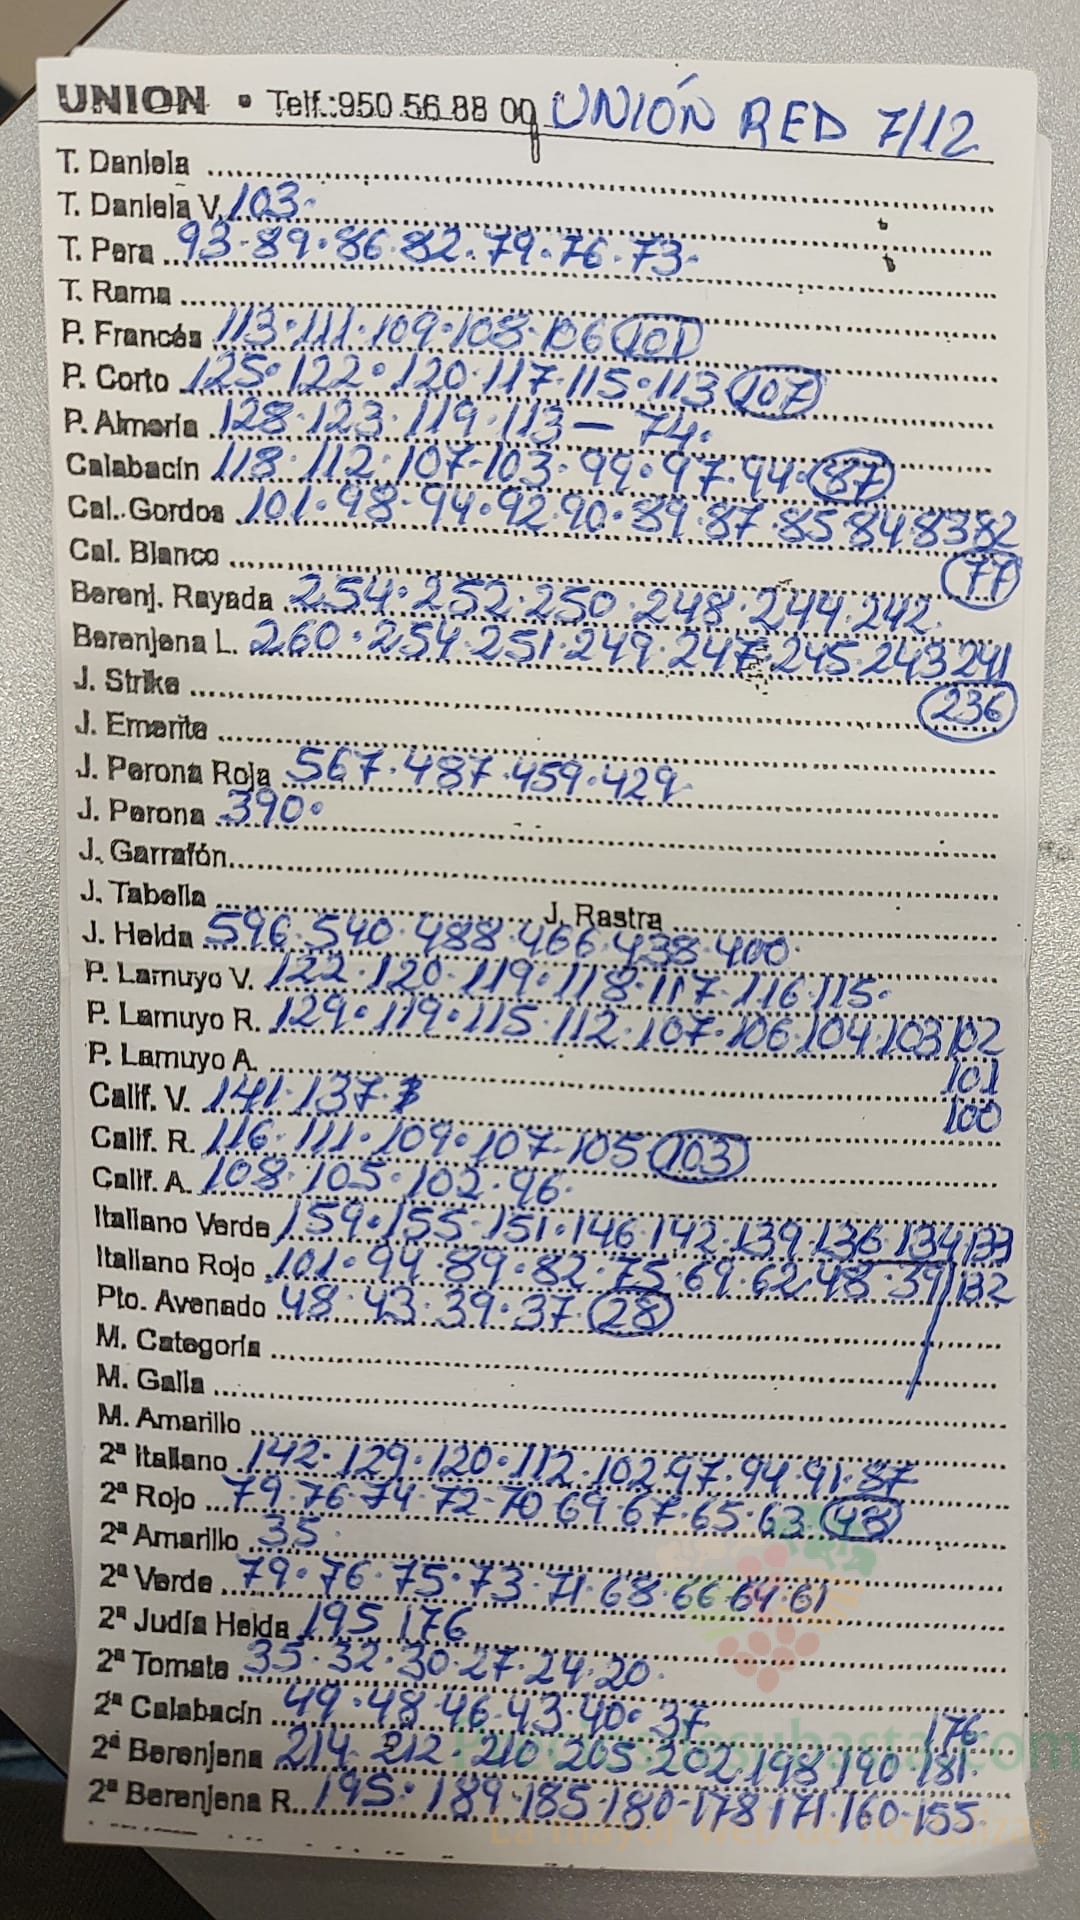 UNION • Telf.:950 56 88 09 UNIÓN RED 7/12
T. Daniela
T. Daniela V. 103.
T. Pera 93.89.86.82.79.76.73.
T. Rama
P. Francés 113.111.109.108.106 101
P. Corto 125.122.120.117.115.113 107
P. Almería 128.123.119.113 — 74.
Calabacín 118.112.107.103.99.97.94.87
Cal. Gordos 101.98.94.92.90.89.87.85 84.83 82
77
Cal. Blanco
Berenj. Rayada 254.252.250.248.244.242.
Berenjena L. 260.254.251.249.247.245.243 241
236
J. Strike
J. Emerite
J. Perona Roja 567.487.459.429.
J. Perona 390.
J. Garrafón
J. Tabella J. Rastra
J. Helda 596.540.488.466.438.400.
P. Lamuyo V. 122.120.119.118.117.116.115.
P. Lamuyo R. 129.119.115.112.107.106.104.103 102
101
100
P. Lamuyo A.
Calif. V. 141.137.
Calif. R. 116.111.109.107.105 103
Calif. A. 108.105.102.96.
Italiano Verde 159.155.151.146.142.139.136.134 133
132
Italiano Rojo 101.94.89.82.75.69.62.48.39
Pto. Avenado 48.43.39.37.28
M. Categoría
M. Galia
M. Amarillo
2ª Italiano 142.129.120.112.102.97.94.91.87
2ª Rojo 79.76.74.72.70 69.67.65.63.43
2ª Amarillo 35.
2ª Verde 79.76.75.73.71.68.66 64.61
2ª Judía Helda 195 176
2ª Tomate 35.32.30.27.24.20.
2ª Calabacín 49.48.46.43.40.37
176.
2ª Berenjena 214.212.210.205.202.198.190.181.
2ª Berenjena R. 195.189.185.180.178 171.160.155.
La mayor web de hortalizas